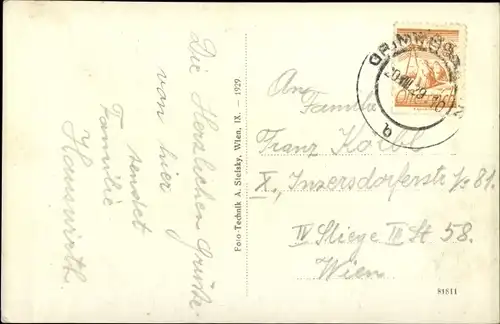 Die Herzlichen Grüße
von hier
sendet
Familie
Foto-Technik A. Stefsky, Wien, IX. – 1929.
An
Familie
Franz
X., Inzersdorferstr 81.
IV Stiege III St 58.
Wien
81811